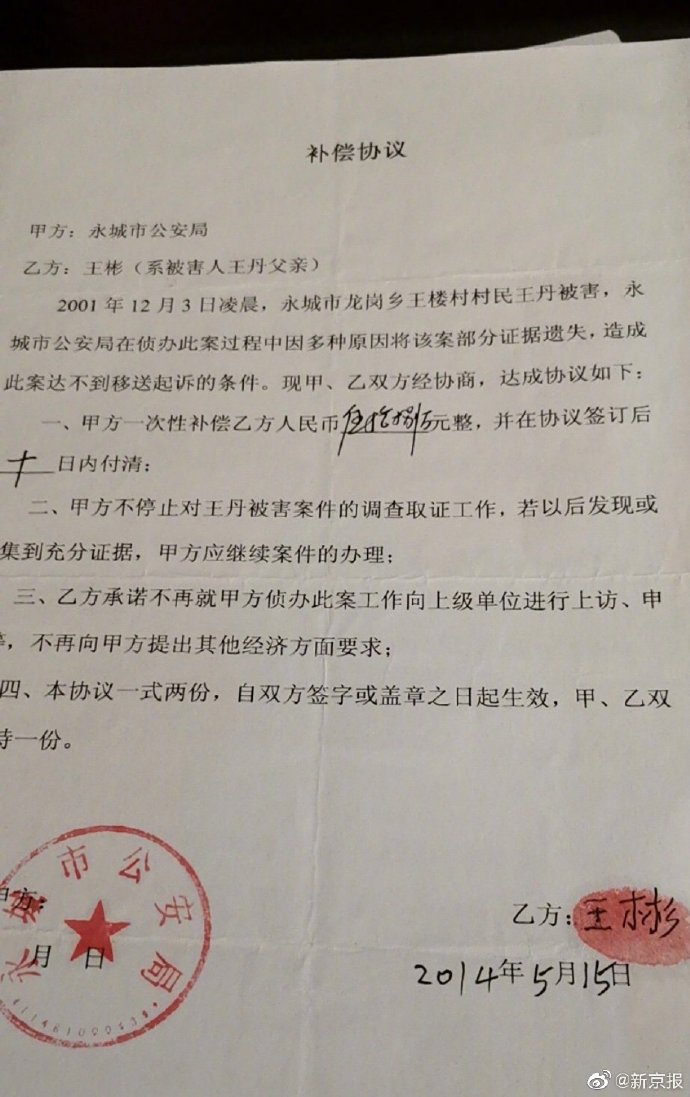 补偿协议
甲方：永城市公安局
乙方：王彬（系被害人王丹父亲）
2001年12月3日凌晨，永城市龙岗乡王楼村村民王丹被害，永
城市公安局在侦办此案过程中因多种原因将该案部分证据遗失，造成
此案达不到移送起诉的条件。现甲、乙双方经协商，达成协议如下：
一、甲方一次性补偿乙方人民币伍拾捌万元整，并在协议签订后
十日内付清；
二、甲方不停止对王丹被害案件的调查取证工作，若以后发现或
集到充分证据，甲方应继续案件的办理；
三、乙方承诺不再就甲方侦办此案工作向上级单位进行上访、申
，不再向甲方提出其他经济方面要求；
四、本协议一式两份，自双方签字或盖章之日起生效，甲、乙双
持一份。
甲方：
乙方：王彬
月 日
2014年5月15日
永城市公安局
@新京报